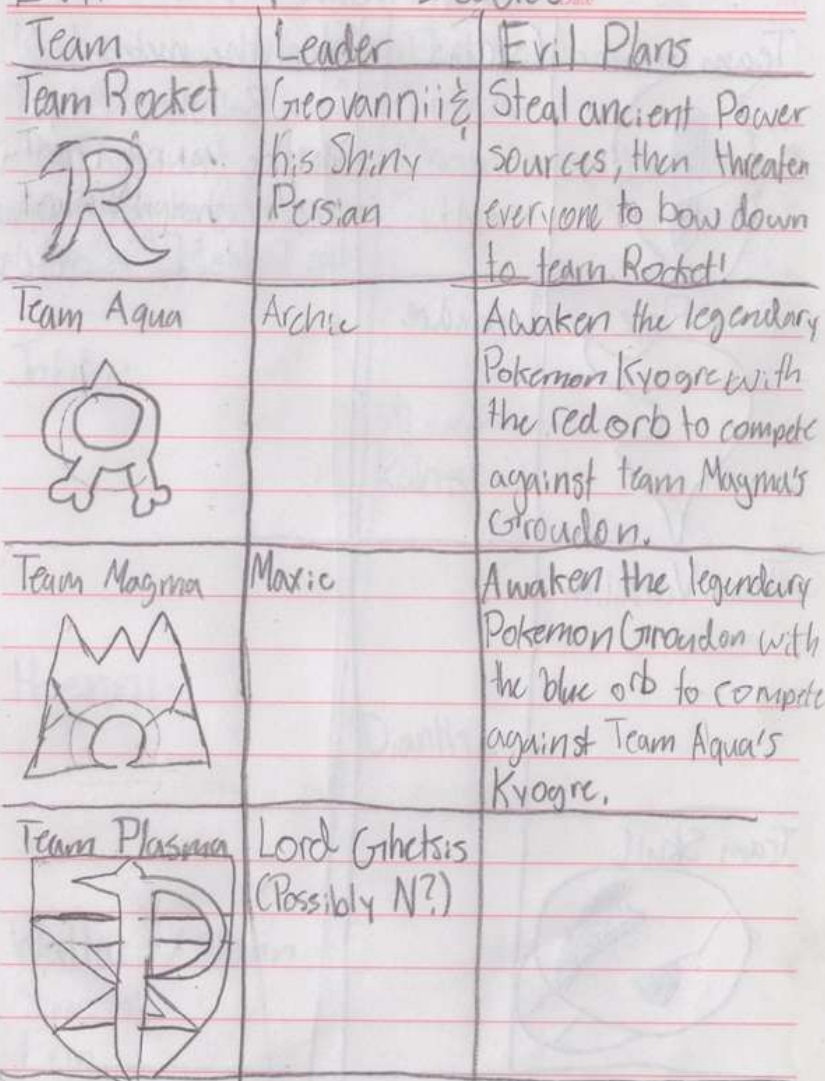 Team Leader Evil Plans
Team Rocket Geovannii &
his Shiny
Persian
Steal ancient Power
sources, then threaten
everyone to bow down
to team Rocket!
R
Team Aqua Archie
Awaken the legendary
Pokemon Kyogre with
the red orb to compete
against team Magma's
Groudon.
Team Magma Maxie
Awaken the legendary
Pokemon Groudon with
the blue orb to compete
against Team Aqua's
Kyogre.
Team Plasma Lord Ghetsis
(Possibly N?)
P
Team Skull